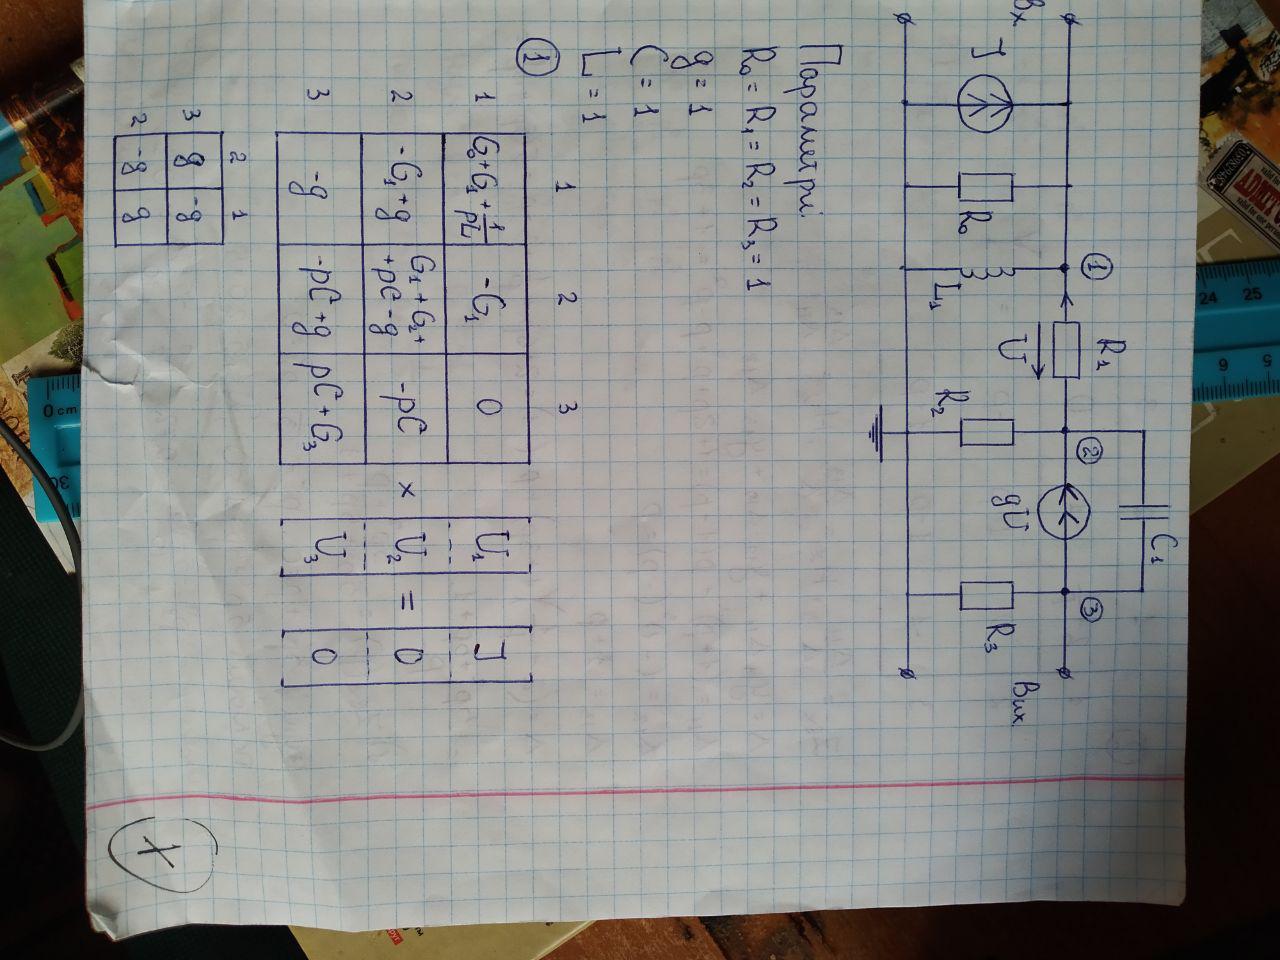 25
24
5
6
ADMIT
C₁
① R₁ ② ③
Вх
J
R₀
L₁
U
R₂
gU
R₃
Вих.
Параметри:
R₀ = R₁ = R₂ = R₃ = 1
g = 1
C = 1
L = 1
①
1 2 3
1 G₀+G₁+1/pL -G₁ 0 U₁ J
2 -G₁+g G₁+G₂++pC-g -pC × U₂ = 0
3 -g -pC+g pC+G₃ U₃ 0
2 1
3 g -g
2 -g g
0 cm
30